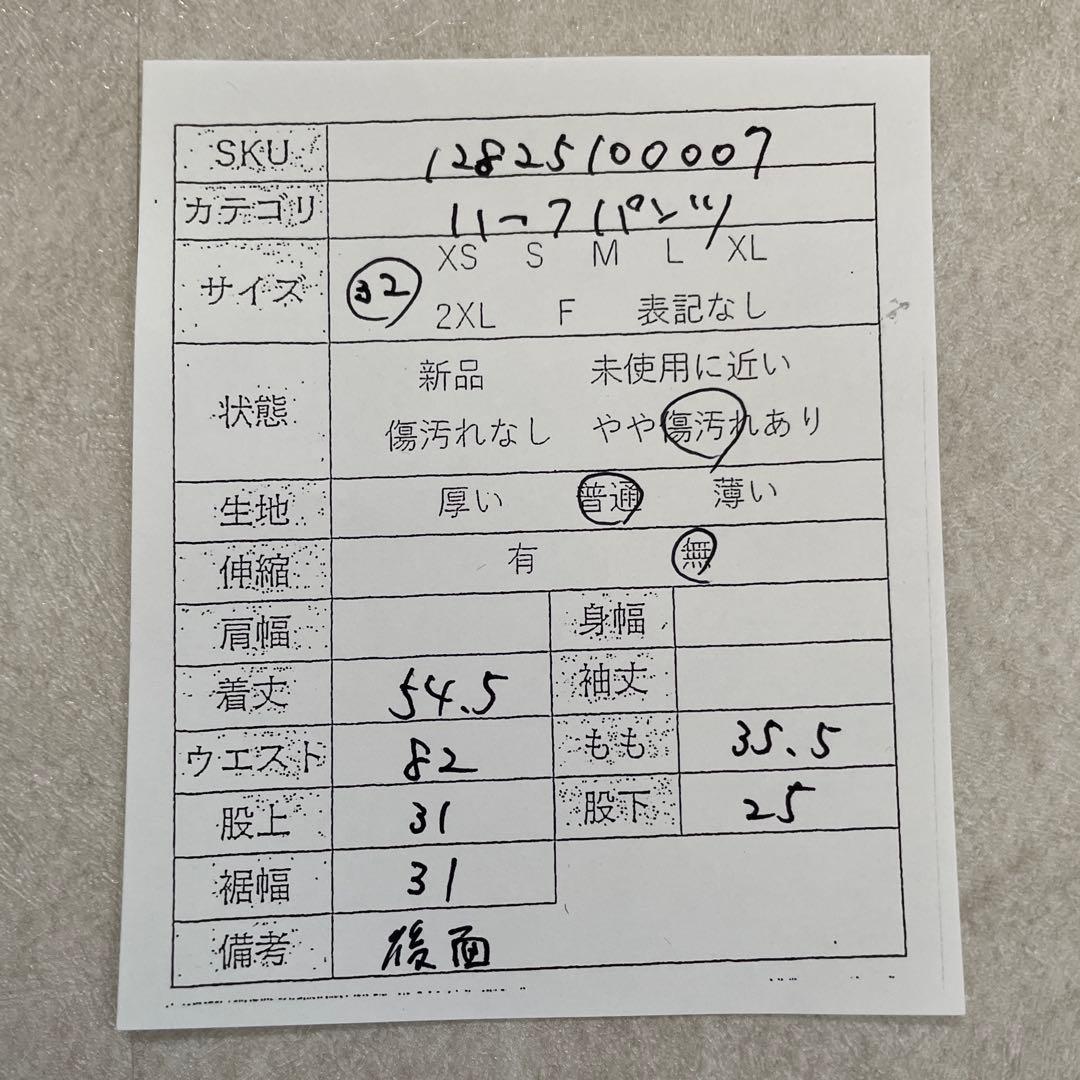 SKU 12825100007
カテゴリ ハーフパンツ
サイズ 32 XS S M L XL
2XL F 表記なし
状態 新品 未使用に近い
傷汚れなし やや傷汚れあり
生地 厚い 普通 薄い
伸縮 有 無
肩幅 身幅
着丈 54.5 袖丈
ウエスト 82 もも 35.5
股上 31 股下 25
裾幅 31
備考 後面